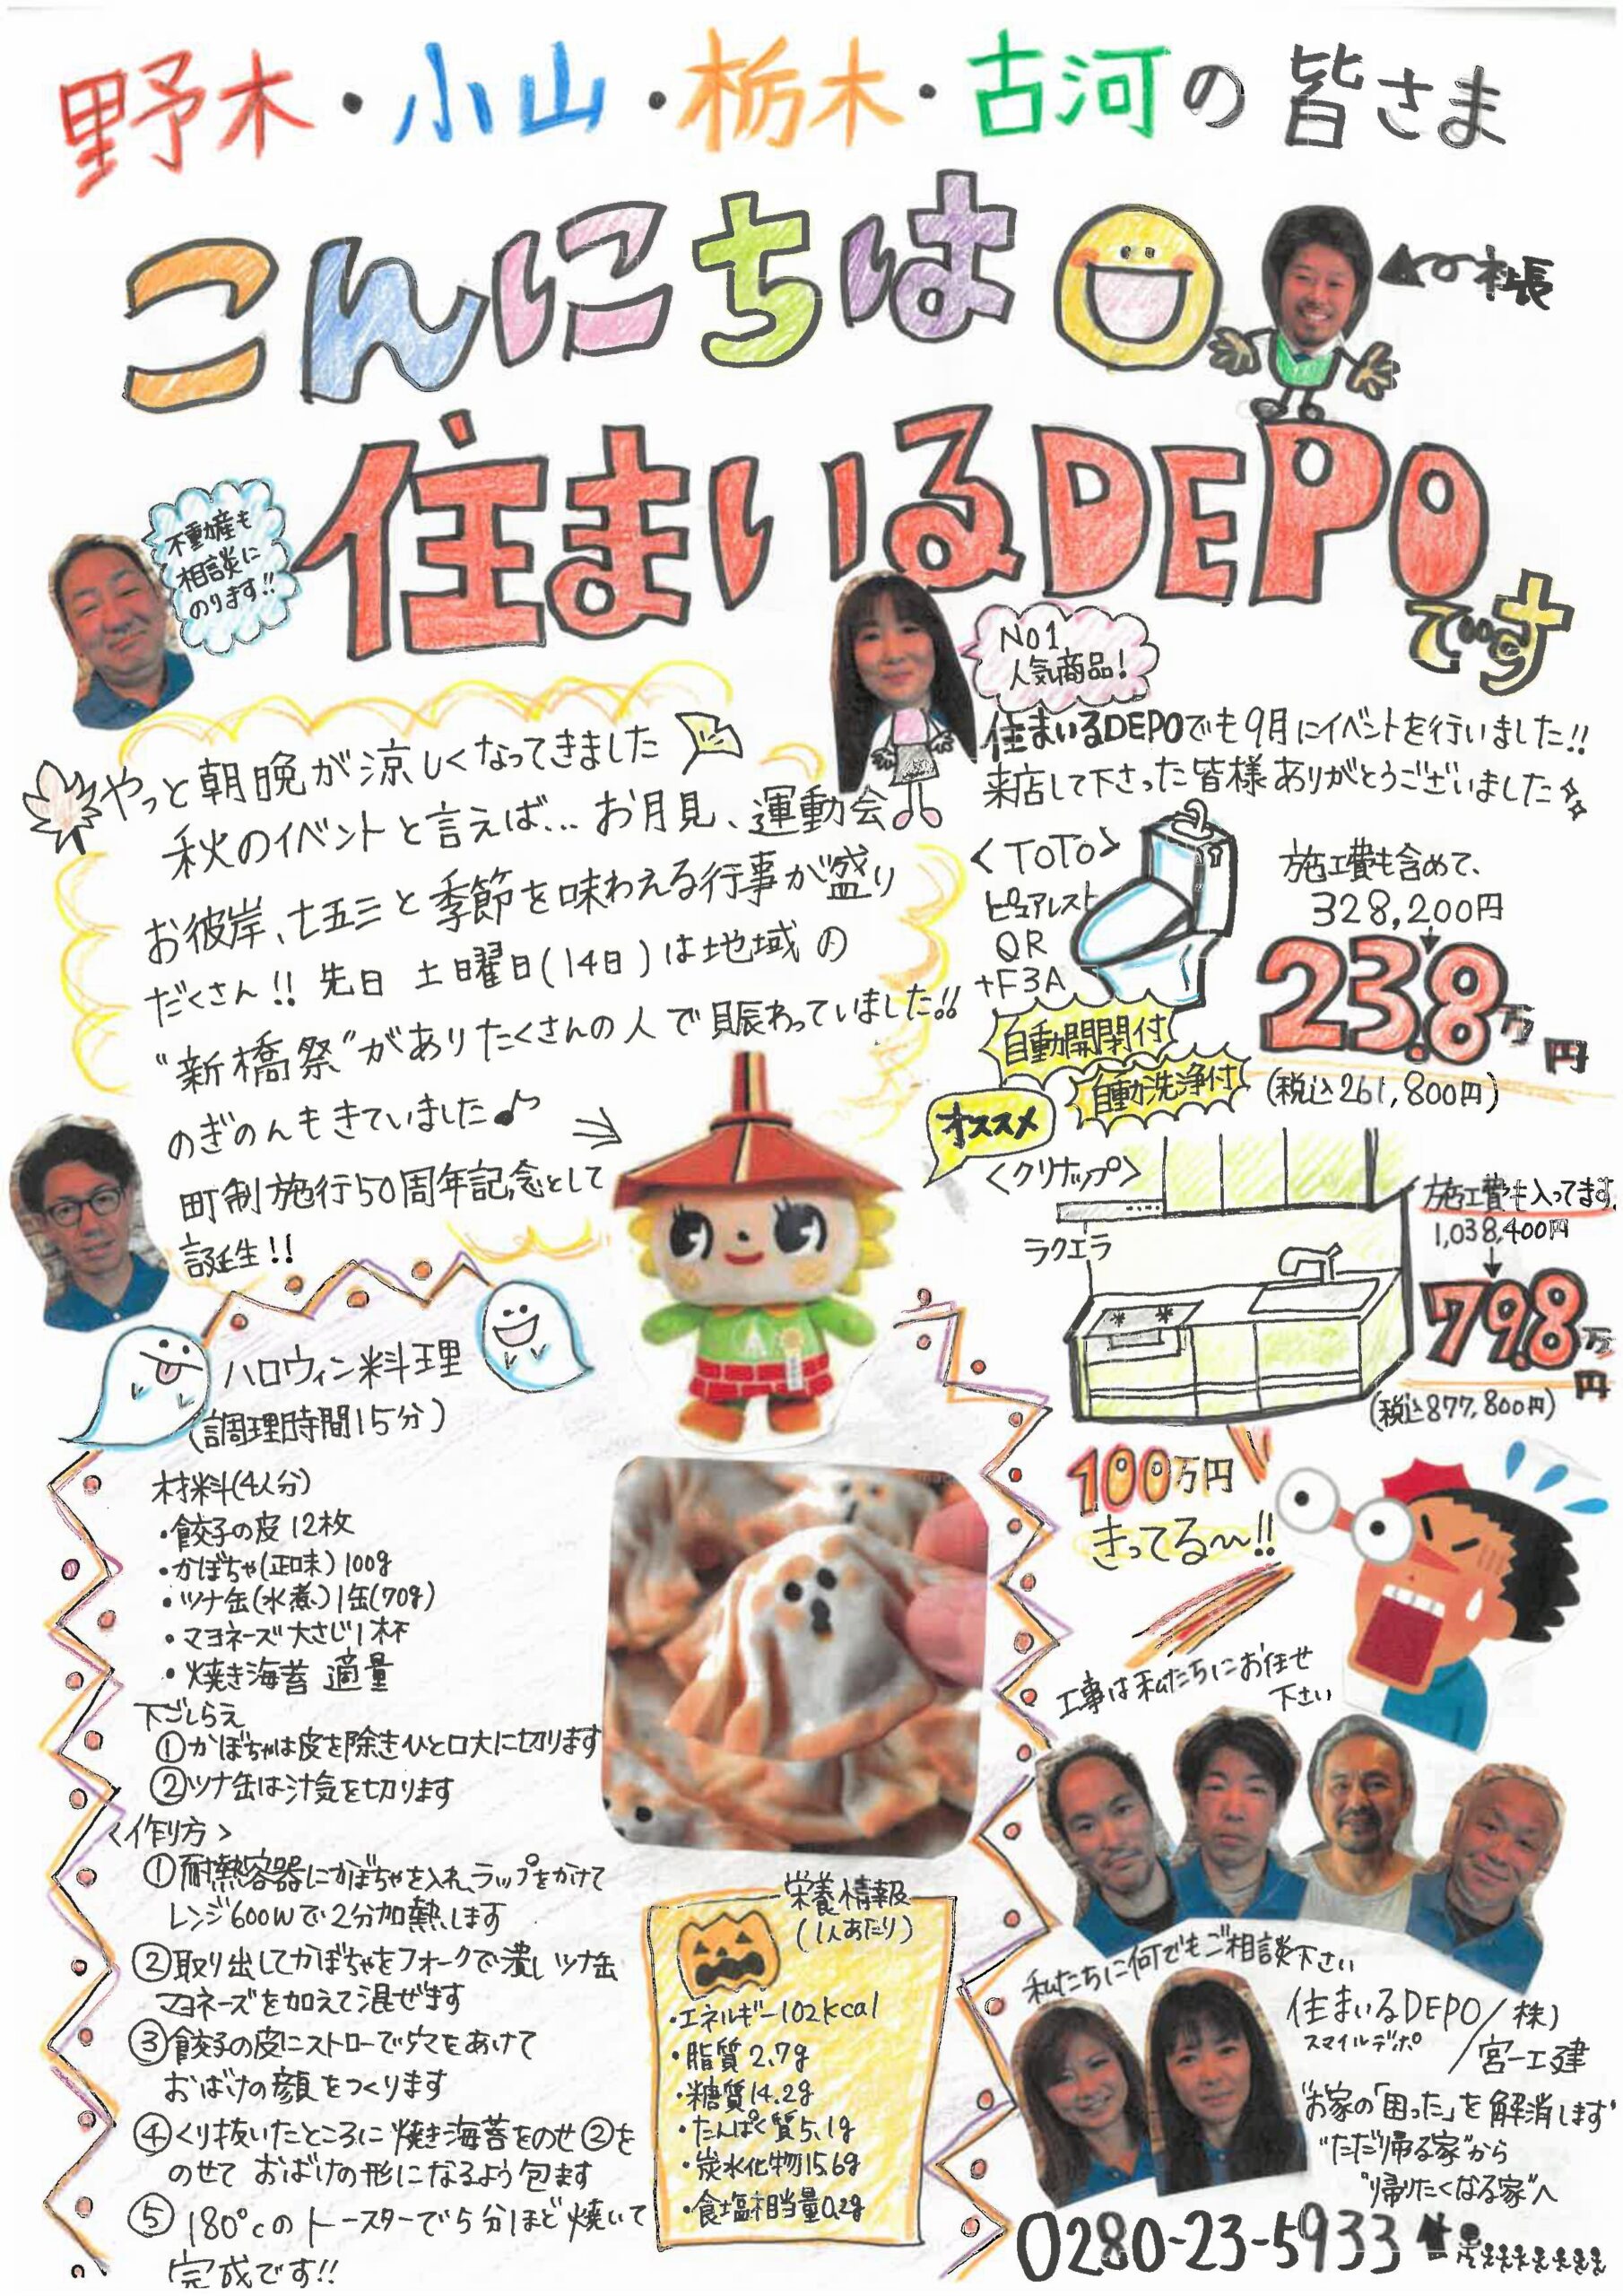 野木・小山・栃木・古河の皆さま
こんにちは
社長
住まいるDEPO
です
不動産も
相談に
のります!!
No1
人気商品!
やっと朝晩が涼しくなってきました
秋のイベントと言えば…お月見、運動会
お彼岸、七五三と季節を味わえる行事が盛り
だくさん!! 先日 土曜日(14日)は地域の
"新橋祭"がありたくさんの人で賑わっていました!!
のぎのんもきていました♪
町制施行50周年記念として
誕生!!
住まいるDEPOでも9月にイベントを行いました!!
来店して下さった皆様ありがとうございました
<TOTO>
ピュアレスト
QR
+F3A
自動開閉付
自動洗浄付
施工費も含めて、
328,200円
↓
23.8万円
(税込261,800円)
オススメ
<クリナップ>
ラクエラ
施工費も入ってます。
1,038,400円
↓
79.8万円
(税込877,800円)
100万円
きってる〜!!
工事は私たちにお任せ
下さい
ハロウィン料理
(調理時間15分)
材料(4人分)
・餃子の皮 12枚
・かぼちゃ(正味)100g
・ツナ缶(水煮)1缶(70g)
・マヨネーズ 大さじ1杯
・焼き海苔 適量
下ごしらえ
①かぼちゃは皮を除きひと口大に切ります
②ツナ缶は汁気を切ります
<作り方>
①耐熱容器にかぼちゃを入れ、ラップをかけて
レンジ600Wで2分加熱します
②取り出してかぼちゃをフォークで潰しツナ缶
マヨネーズを加えて混ぜます
③餃子の皮にストローで穴をあけて
おばけの顔をつくります
④くり抜いたところに焼き海苔をのせ②を
のせて おばけの形になるよう包ます
⑤180°cのトースターで5分ほど焼いて
完成です!!
栄養情報
(1人あたり)
・エネルギー102kcal
・脂質2.7g
・糖質14.2g
・たんぱく質5.1g
・炭水化物15.6g
・食塩相当量0.2g
私たちに何でもご相談下さい
住まいるDEPO/株)
スマイルデポ
宮一工建
"お家の「困った」を解消します"
"ただ帰る家"から
"帰りたくなる家"へ
0280-23-5933